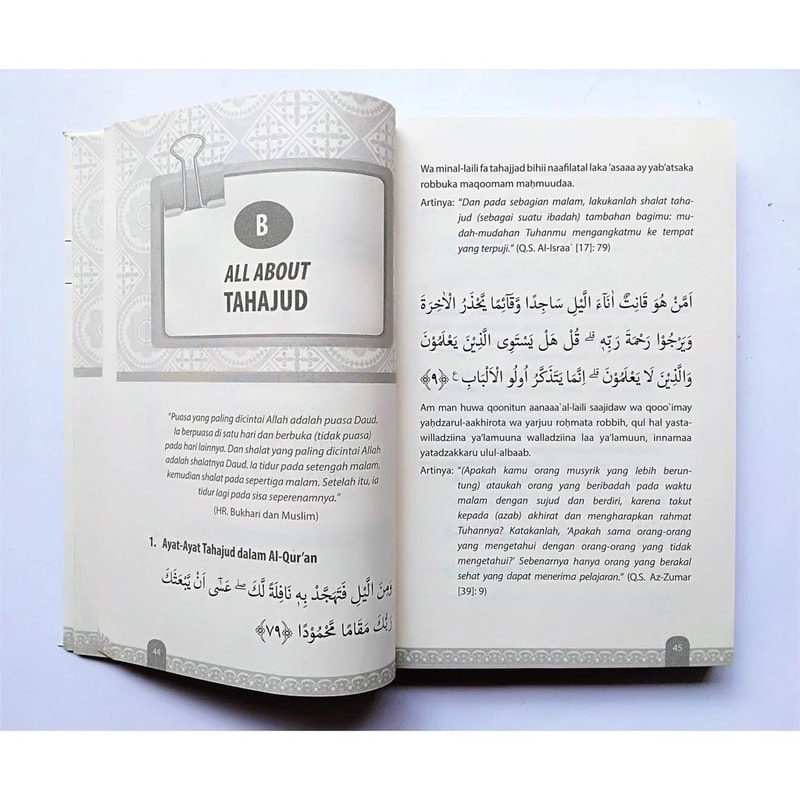 B
ALL ABOUT
TAHAJUD
"Puasa yang paling dicintai Allah adalah puasa Daud.
Ia berpuasa di satu hari dan berbuka (tidak puasa)
pada hari lainnya. Dan shalat yang paling dicintai Allah
adalah shalatnya Daud. Ia tidur pada setengah malam,
kemudian shalat pada sepertiga malam. Setelah itu, ia
tidur lagi pada sisa seperenamnya."
(HR. Bukhari dan Muslim)
1. Ayat-Ayat Tahajud dalam Al-Qur'an
وَمِنَ الَّيْلِ فَتَهَجَّدْ بِهٖ نَافِلَةً لَّكَۖ عَسٰٓى اَنْ يَّبْعَثَكَ
رَبُّكَ مَقَامًا مَّحْمُوْدًا ﴿٧٩﴾
44
Wa minal-laili fa tahajjad bihii naafilatal laka 'asaaa ay yab'atsaka
robbuka maqoomam maḥmuudaa.
Artinya: "Dan pada sebagian malam, lakukanlah shalat taha-
jud (sebagai suatu ibadah) tambahan bagimu: mu-
dah-mudahan Tuhanmu mengangkatmu ke tempat
yang terpuji." (Q.S. Al-Israa` [17]: 79)
اَمَّنْ هُوَ قَانِتٌ اٰنَاۤءَ الَّيْلِ سَاجِدًا وَّقَاۤىِٕمًا يَّحْذَرُ الْاٰخِرَةَ
وَيَرْجُوْا رَحْمَةَ رَبِّهٖۗ قُلْ هَلْ يَسْتَوِى الَّذِيْنَ يَعْلَمُوْنَ
وَالَّذِيْنَ لَا يَعْلَمُوْنَۗ اِنَّمَا يَتَذَكَّرُ اُولُو الْاَلْبَابِ ع ﴿٩﴾
Am man huwa qoonitun aanaaa`al-laili saajidaw wa qooo`imay
yaḥdzarul-aakhirota wa yarjuu roḥmata robbih, qul hal yasta-
willadziina ya'lamuuna walladziina laa ya'lamuun, innamaa
yatadzakkaru ulul-albaab.
Artinya: "(Apakah kamu orang musyrik yang lebih berun-
tung) ataukah orang yang beribadah pada waktu
malam dengan sujud dan berdiri, karena takut
kepada (azab) akhirat dan mengharapkan rahmat
Tuhannya? Katakanlah, 'Apakah sama orang-orang
yang mengetahui dengan orang-orang yang tidak
mengetahui?' Sebenarnya hanya orang yang berakal
sehat yang dapat menerima pelajaran." (Q.S. Az-Zumar
[39]: 9)
45